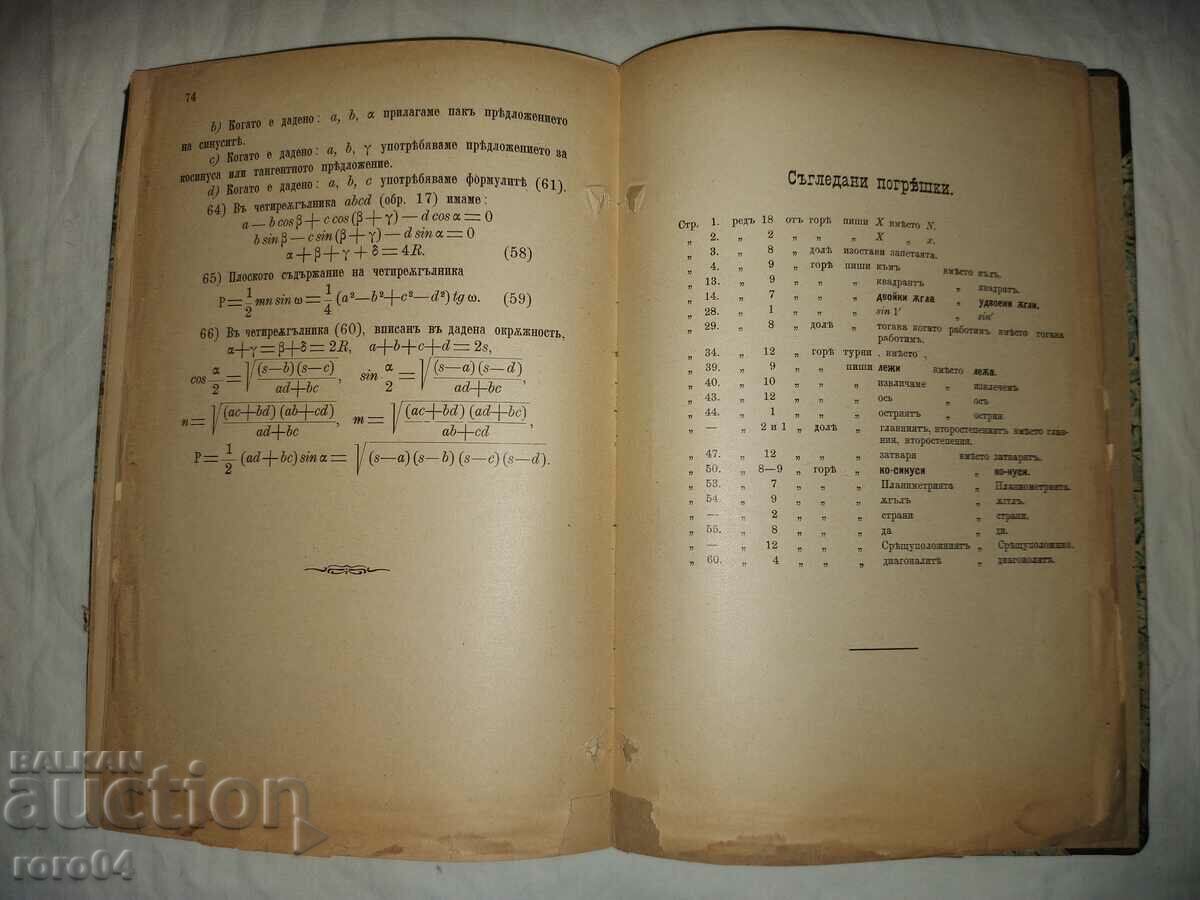 74
b) Когато е дадено: a, b, α прилагаме пакъ прѣдложението
на синуситѣ.
c) Когато е дадено: a, b, γ употрѣбяваме прѣдложението за
косинуса или тангентното прѣдложение.
d) Когато е дадено: a, b, c употрѣбяваме формулитѣ (61).
64) Въ четиреѫгълника abcd (обр. 17) имаме:
a — b cos β + c cos (β + γ) — d cos α = 0
b sin β — c sin (β + γ) — d sin α = 0
α + β + γ + δ = 4R. (58)
65) Плоското съдържание на четиреѫгълника
P = 1/2 mn sin ω = 1/4 (a² — b² + c² — d²) tg ω. (59)
66) Въ четиреѫгълника (60), вписан въ дадена окрѫжность,
α + γ = β + δ = 2R, a + b + c + d = 2s,
cos α/2 = √((s—b)(s—c)/(ad+bc)), sin α/2 = √((s—a)(s—d)/(ad+bc)),
n = √((ac+bd)(ab+cd)/(ad+bc)), m = √((ac+bd)(ad+bc)/(ab+cd))
P = 1/2 (ad+bc) sin α = √((s—a)(s—b)(s—c)(s—d)).
Съгледани погрѣшки.
Стр. 1. редъ 18 отъ горѣ пиши X вмѣсто N.
„ 2. „ 2 „ „ „ X „ x.
„ 3. „ 8 „ долѣ изостави запетаята.
„ 4. „ 9 „ горѣ пиши къмъ вмѣсто
„ 13. „ 9 „ „ „ квадрантъ „ квадратъ.
„ 14. „ 7 „ „ „ двойки ѫгла „ удвоени ѫгли.
„ 28. „ 1 „ „ „ sin 1′ „ sin′
„ 29. „ 8 „ долѣ „ тогава когато работимъ вмѣсто тогава
работимъ.
„ 34. „ 12 „ горѣ турни . вмѣсто ,
„ 39. „ 9 „ „ пиши лежи вмѣсто лежа.
„ 40. „ 10 „ „ „ извличаме „ извлечемъ
„ 43. „ 12 „ „ „ ось „ осъ
„ 44. „ 1 „ „ „ остриятъ „ острия.
„ — „ 2 и 1 „ долѣ „ главниятъ, второстепениятъ вмѣсто глав-
ния, второстепения.
„ 47. „ 12 „ „ „ затваря вмѣсто затварятъ.
„ 50. „ 8—9 „ горѣ „ ко-синуси „ ко-нуси.
„ 53. „ 7 „ „ „ Планиметрията „ Планнометрията.
„ 54. „ 9 „ „ „ ѫгълъ „ ѫгтлъ.
„ — „ 2 „ „ „ страни „ страни.
„ 55. „ 8 „ „ „ да „ ди.
„ — „ 12 „ „ „ Срѣщуположниятъ „ Срѣщуположние.
„ 60. „ 4 „ „ „ диагоналитѣ „ диагонолитъ.
BALKAN
auction
roro04